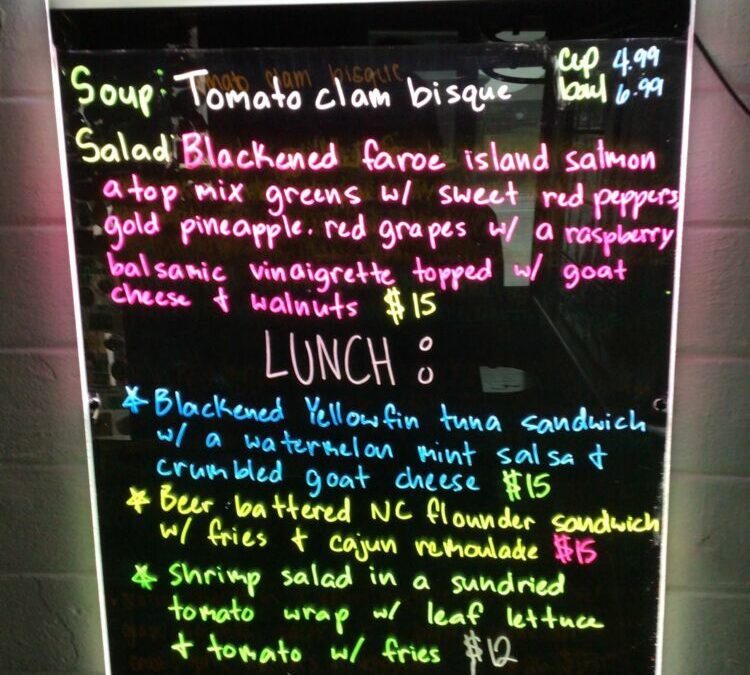 Soup: Tomato clam bisque cup 4.99
bowl 6.99
Salad: Blackened faroe island salmon
atop mix greens w/ sweet red peppers,
gold pineapple. red grapes w/ a raspberry
balsamic vinaigrette topped w/ goat
cheese + walnuts $15
LUNCH:
* Blackened Yellowfin tuna sandwich
w/ a watermelon mint salsa +
crumbled goat cheese $15
* Beer battered NC flounder sandwich
w/ fries + cajun remoulade $15
* Shrimp salad in a sundried
tomato wrap w/ leaf lettuce
+ tomato w/ fries $12